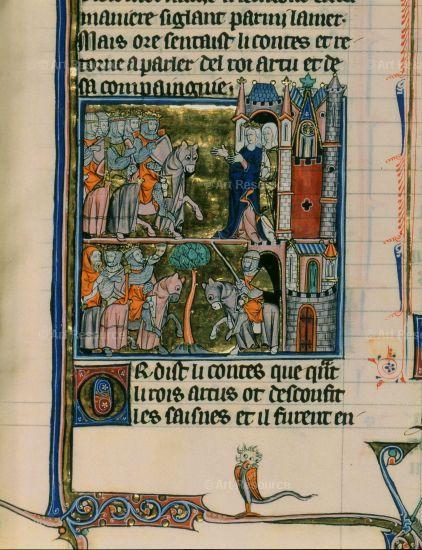 maniere siglant parmi lamer.
Mais ore sentaist li contes et re
torne a parler del roi artu et de
sa compaingnie.
OR dist li contes que qn̄t
li rois artus ot desconfit
les saisnes et il furent en
© Art Resource